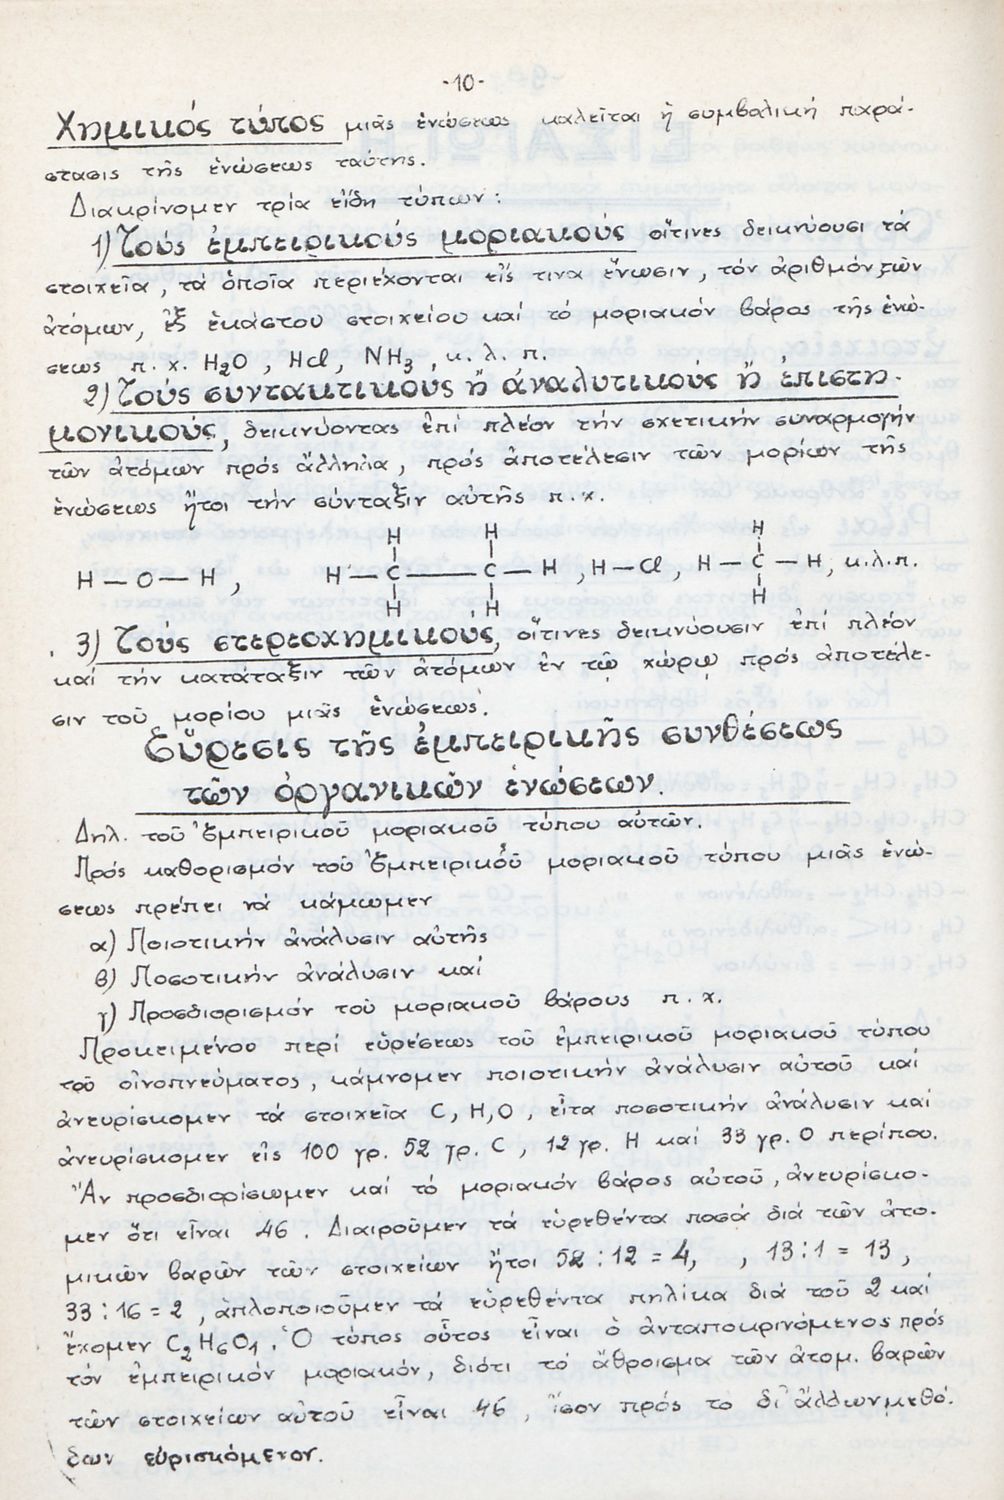 -10-
Χημικός τύπος μιᾶς ἑνώσεως καλεῖται ἡ συμβολική παρά-
στασις τῆς ἑνώσεως ταύτης.
Διακρίνομεν τρία εἴδη τύπων:
1) Τούς ἐμπειρικούς μοριακούς οἵτινες δεικνύουσι τά
στοιχεῖα, τά ὁποῖα περιέχονται εἰς τινα ἕνωσιν, τόν ἀριθμόν τῶν
ἀτόμων, ἐξ ἑκάστου στοιχείου καί τό μοριακόν βάρος τῆς ἑνώ-
σεως π.χ. H₂O, HCl, NH₃, κ.λ.π.
2) Τούς συντακτικούς ἤ ἀναλυτικούς ἤ ἐπιστη-
μονικούς, δεικνύοντας ἐπί πλέον τήν σχετικήν συναρμογήν
τῶν ἀτόμων πρός ἄλληλα, πρός ἀποτέλεσιν τῶν μορίων τῆς
ἑνώσεως ἤτοι τήν σύνταξιν αὐτῆς π.χ.
H H H
H — O — H, H — C — C — H, H — Cl, H — C — H, κ.λ.π.
H H H
3) Τούς στερεοχημικούς, οἵτινες δεικνύουσιν ἐπί πλέον
καί τήν κατάταξιν τῶν ἀτόμων ἐν τῷ χώρῳ πρός ἀποτέλε-
σιν τοῦ μορίου μιᾶς ἑνώσεως.
Εὕρεσις τῆς ἐμπειρικῆς συνθέσεως
τῶν ὀργανικῶν ἑνώσεων.
Δηλ. τοῦ Ἐμπειρικοῦ μοριακοῦ τύπου αὐτῶν.
Πρός καθορισμόν τοῦ Ἐμπειρικοῦ μοριακοῦ τύπου μιᾶς ἑνώ-
σεως πρέπει νά κάμωμεν
α) Ποιοτικήν ἀνάλυσιν αὐτῆς
β) Ποσοτικήν ἀνάλυσιν καί
γ) Προσδιορισμόν τοῦ μοριακοῦ βάρους π.χ.
Προκειμένου περί εὑρέσεως τοῦ ἐμπειρικοῦ μοριακοῦ τύπου
τοῦ οἰνοπνεύματος, κάμνομεν ποιοτικήν ἀνάλυσιν αὐτοῦ καί
ἀνευρίσκομεν τά στοιχεῖα C, H, O, εἶτα ποσοτικήν ἀνάλυσιν καί
ἀνευρίσκομεν εἰς 100 γρ. 52 γρ. C, 12 γρ. H καί 33 γρ. O περίπου.
Ἄν προσδιορίσωμεν καί τό μοριακόν βάρος αὐτοῦ, ἀνευρίσκο-
μεν ὅτι εἶναι 46. Διαιροῦμεν τά εὑρεθέντα ποσά διά τῶν ἀτο-
μικῶν βαρῶν τῶν στοιχείων ἤτοι 52:12=4, , 13:1=13,
33:16=2, ἁπλοποιοῦμεν τά εὑρεθέντα πηλίκα διά τοῦ 2 καί
ἔχομεν C₂H₆O₁. Ὁ τύπος οὗτος εἶναι ὁ ἀνταποκρινόμενος πρός
τόν ἐμπειρικόν μοριακόν, διότι τό ἄθροισμα τῶν ἀτομ. βαρῶν
τῶν στοιχείων αὐτοῦ εἶναι 46, ἴσον πρός το δι' ἄλλων μεθό-
δων εὑρισκόμενον.